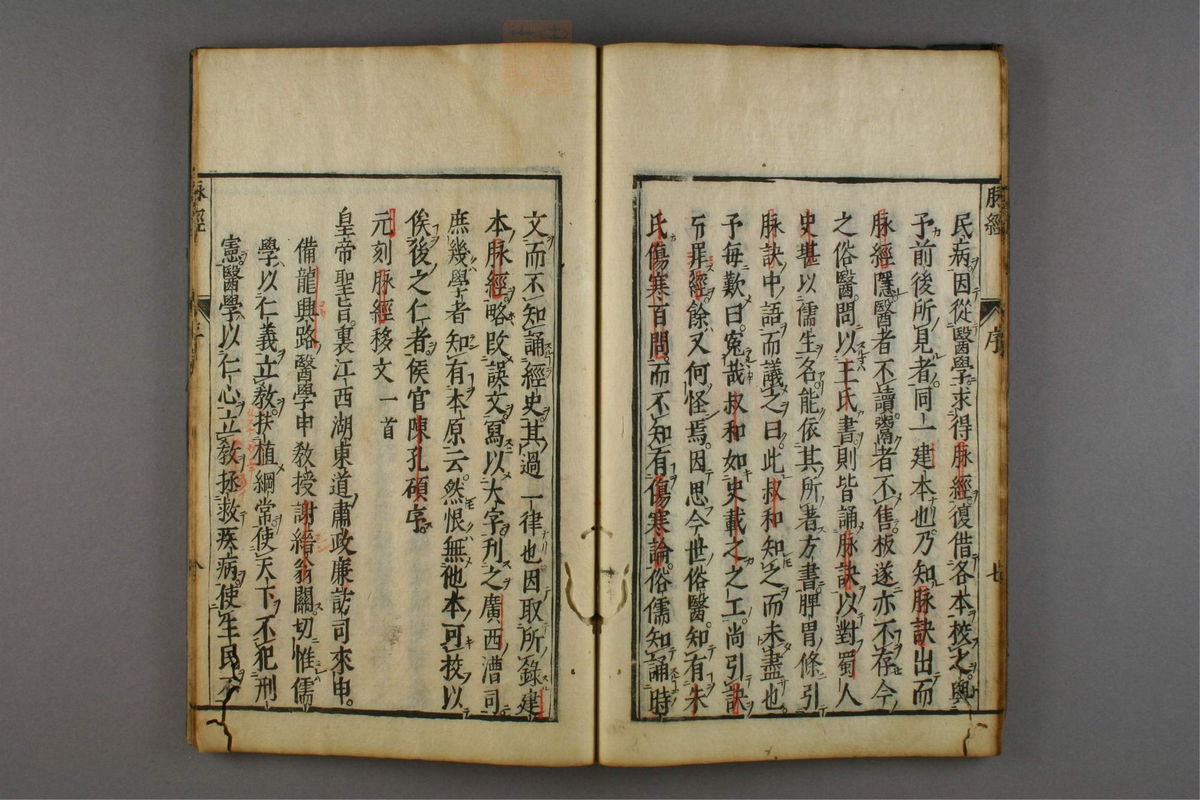 脉經
序
七
民病因從醫學求得脉經復借各本校之與
予前後所見者同一建本也乃知脉訣出而
脉經隱醫者不讀鬻者不售板遂亦不存今
之俗醫問以王氏書則皆誦脉訣以對蜀人
史堪以儒生名能依其所著方書脾胃條引
脉訣中語而議之曰此叔和知之而未盡也
予每歎曰寃哉叔和如史載之之工尚引訣
而罪經餘又何怪焉因思今世俗醫知有朱
氏傷寒百問而不知有傷寒論俗儒知誦時
文而不知誦經史其過一律也因取所錄建
本脉經略改誤文寫以大字刊之廣西漕司
庶幾學者知有本原云然恨無他本可挍以
俟後之仁者候官陳孔碩序
元刻脉經移文一首
皇帝聖旨裏江西湖東道肅政廉訪司來申
備龍興路醫學申教授謝縉翁關切惟儒
學以仁義立教扶植綱常使天下不犯刑
憲醫學以仁心立教拯救疾病使生民不
脉經
八